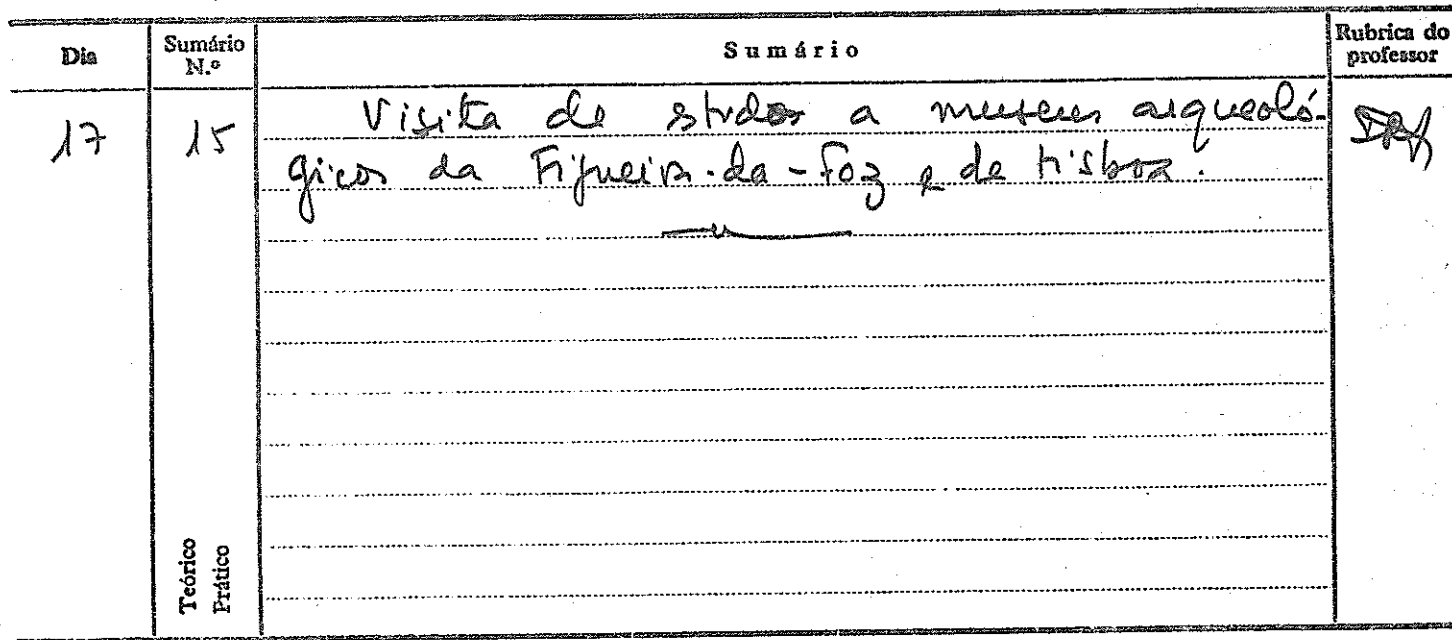 Dia Sumário N.º Sumário Rubrica do professor
17 15 Visita de estudos a museus arqueoló-
gicos da Figueira-da-Foz e de Lisboa.
Teórico
Prático